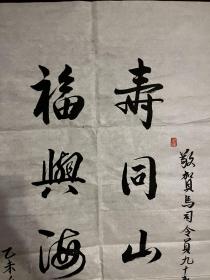 敬賀馬司令員九十
壽同山
福與海
乙未